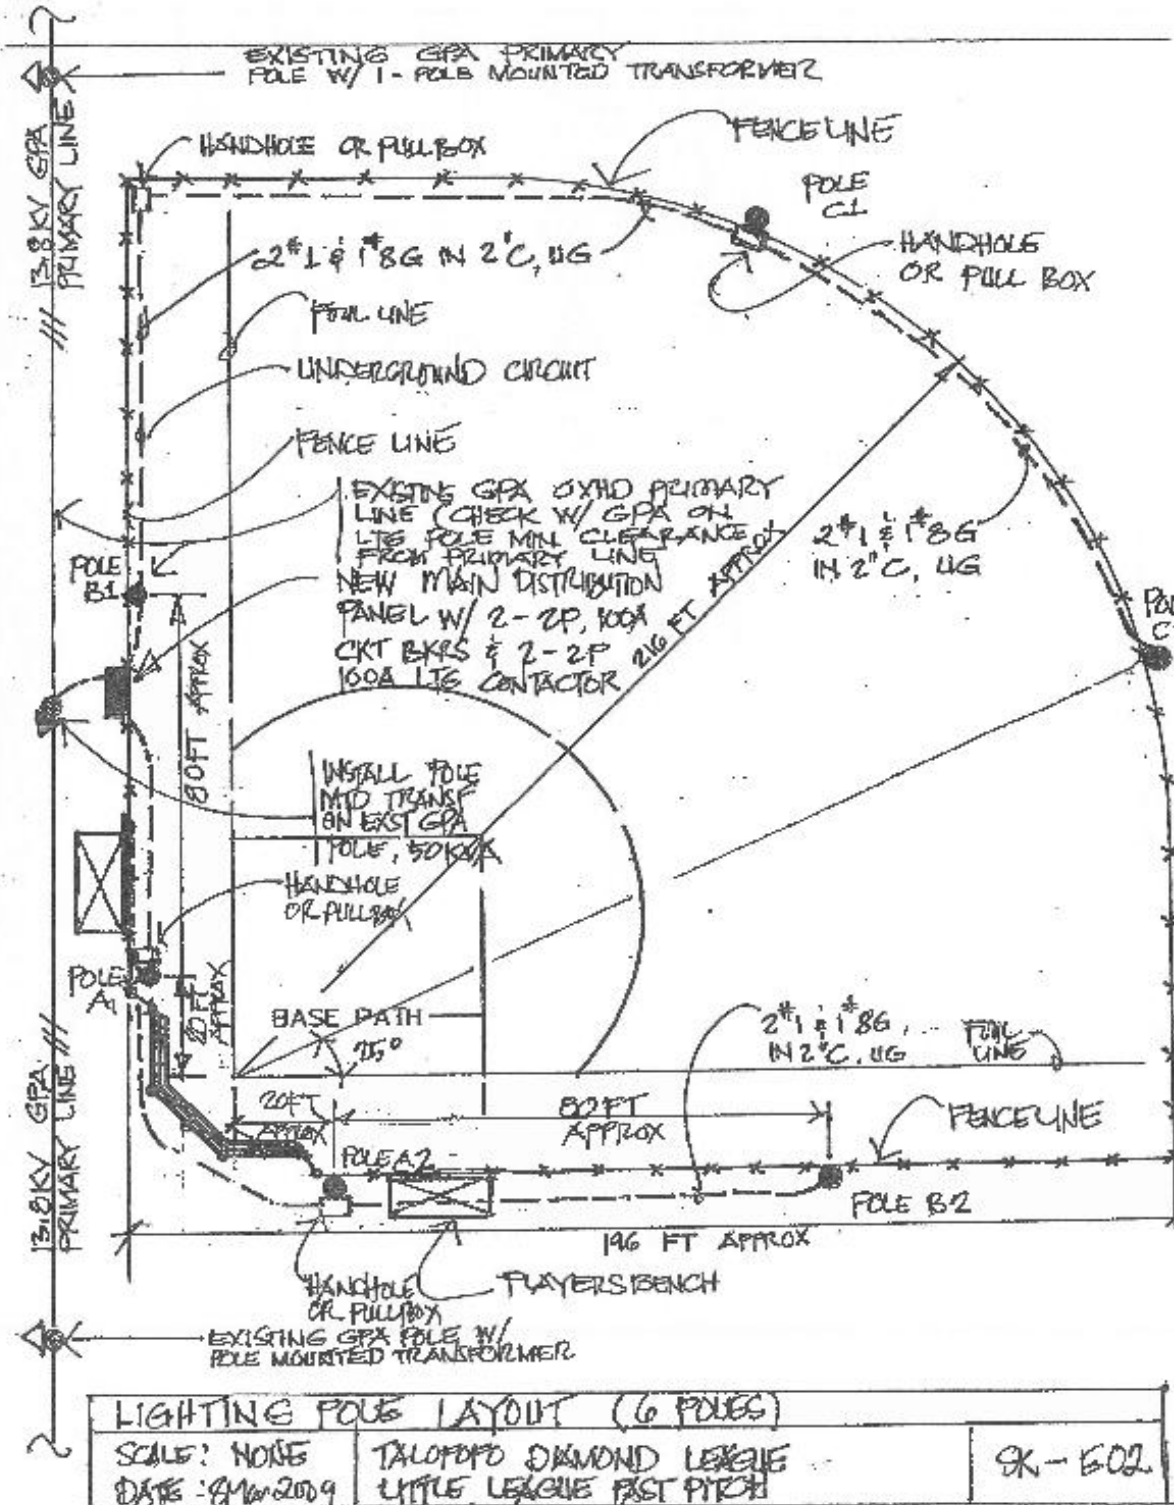 EXISTING GPA PRIMARY
POLE W/ 1-POLE MOUNTED TRANSFORMER
13.8KV GPA
PRIMARY LINE
HANDHOLE OR PULLBOX
FENCE LINE
POLE
C1
HANDHOLE
OR PULL BOX
2#1 & 1#8G IN 2"C, UG
FOUL LINE
UNDERGROUND CIRCUIT
FENCE LINE
EXISTING GPA OXHD PRIMARY
LINE (CHECK W/ GPA ON
LTG POLE MIN. CLEARANCE
FROM PRIMARY LINE
2#1 & 1#8G
IN 2"C, UG
POLE
B1
NEW MAIN DISTRIBUTION
PANEL W/ 2-2P, 100A
CKT BKRS & 2-2P
100A LTG CONTACTOR
216 FT APPROX
80FT APPROX
INSTALL POLE
MTD TRANSF
ON EXST GPA
POLE, 50KVA
HANDHOLE
OR PULLBOX
POLE
A1
20FT
APPROX
BASE PATH
75°
2#1 & 1#8G
IN 2"C, UG
FOUL
LINE
20FT
APPROX
80FT
APPROX
FENCE LINE
POLE A2
POLE B2
196 FT APPROX
13.8KV GPA
PRIMARY LINE
HANDHOLE
OR PULLBOX
PLAYERS BENCH
EXISTING GPA POLE W/
POLE MOUNTED TRANSFORMER
LIGHTING POLE LAYOUT (6 POLES)
SCALE: NONE
DATE: 8Mar2009
TALOFOFO DIAMOND LEAGUE
LITTLE LEAGUE FAST PITCH
SK-E02